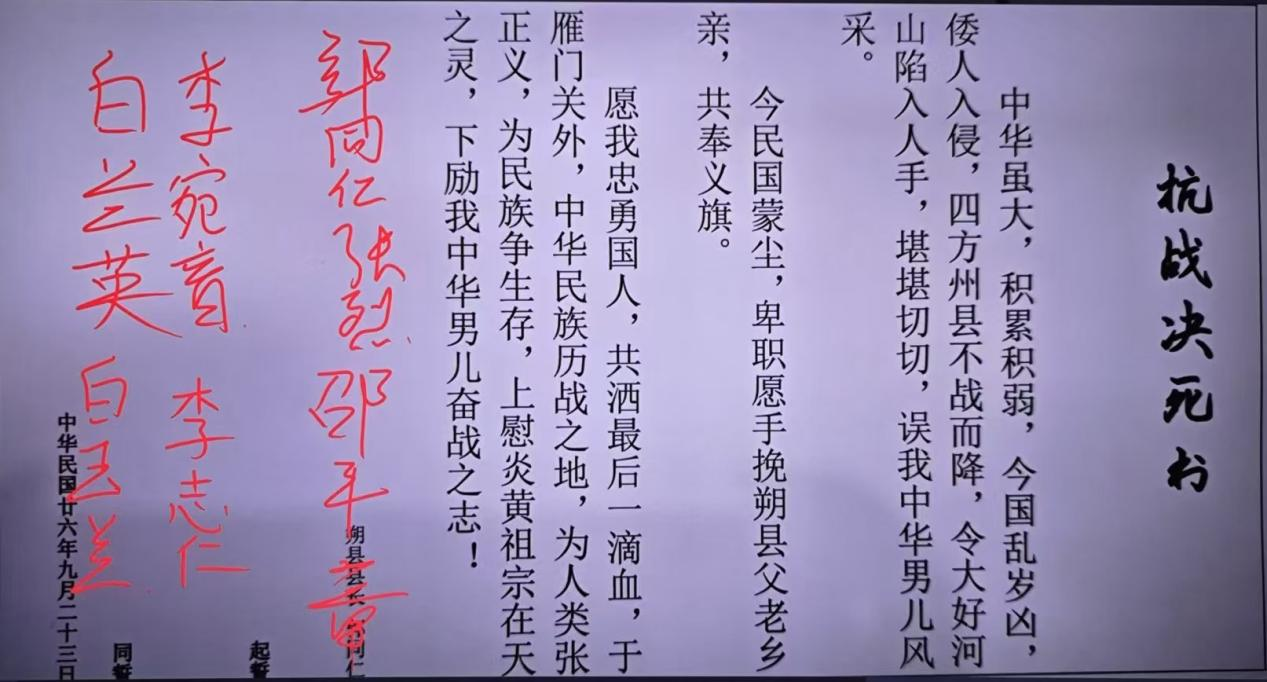 抗战决死书
中华虽大，积累积弱，今国乱岁凶，
倭人入侵，四方州县不战而降，令大好河
山陷入人手，堪堪切切，误我中华男儿风
采。
今民国蒙尘，卑职愿手挽朔县父老乡
亲，共奉义旗。
愿我忠勇国人，共洒最后一滴血，于
雁门关外，中华民族历战之地，为人类张
正义，为民族争生存，上慰炎黄祖宗在天
之灵，下励我中华男儿奋战之志！
郭同仁 张烈 邵平
朔县县长
同仁
李宛音 李志仁
起誓
白兰英 白玉兰
同誓
中华民国廿六年九月二十三日